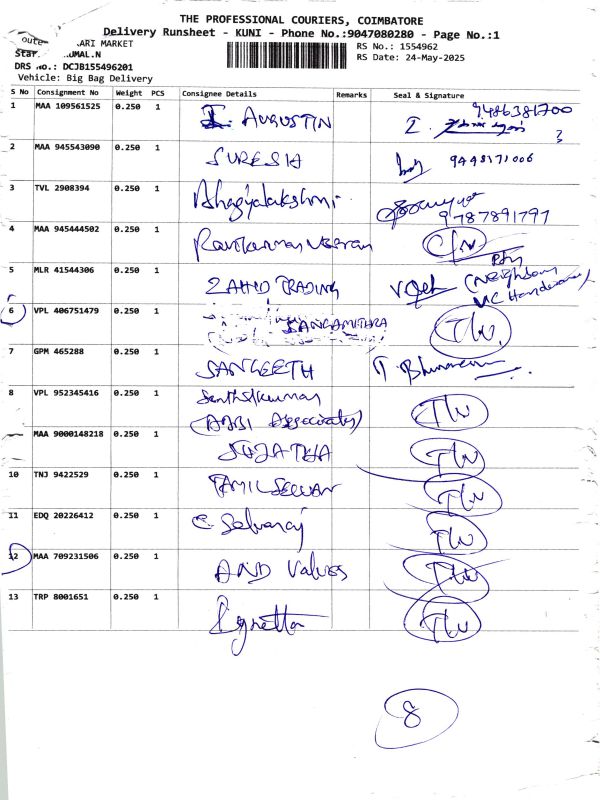 THE PROFESSIONAL COURIERS, COIMBATORE
Delivery Runsheet - KUNI - Phone No.:9047080280 - Page No.:1
oute
ARI MARKET
RS No.: 1554962
UMAL.N
RS Date: 24-May-2025
DRS No.: DCJB155496201
Vehicle: Big Bag Delivery
S No Consignment No Weight PCS Consignee Details Remarks Seal & Signature
1 MAA 109561525 0.250 1 I. AUGUSTIN 9486381700
2 MAA 945543090 0.250 1 SURESH 9448171006
3 TVL 2908394 0.250 1 Bhagyalakshmi 9787891797
4 MAA 945444502 0.250 1
5 MLR 41544306 0.250 1 ZAHID TRADING (Neighbour
6 VPL 406751479 0.250 1 SANGAMITHRA
7 GPM 465288 0.250 1 SANGEETH
8 VPL 952345416 0.250 1 Senthilkumar
Associates)
MAA 9000148218 0.250 1 SUJATHA
10 TNJ 9422529 0.250 1 TAMILSELVAN
11 EDQ 20226412 0.250 1 C. Selvaraj
12 MAA 709231506 0.250 1 AND Values
13 TRP 8001651 0.250 1
8